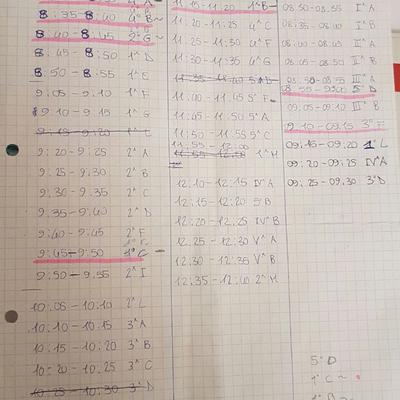 8:35-8:40 4^B~
8:40-8:45 2^G~
8:45-8:50 1^D
8:50-8:55 1^E
9:05-9:10 1^F
9:10-9:15 1^G
9:15-9:20
9:20-9:25 2^A
9:25-9:30 2^B
9:30-9:35 2^C
9:35-9:40 2^D
9:40-9:45 2^F
9:45-9:50 1^C -
9:50-9:55 2^I
10:05-10:10 2^L
10:10-10:15 3^A
10:15-10:20 3^B
10:20-10:25 3^C
10:25-10:30 3^D
11.15-11.20 1^B-
11.20-11:25 4^C
11.25-11:30 4^F
11.30-11:35 4^G
11.40-11.45 5^F-
11.45-11.50 5^A
11.50-11:55 5^C
11:55-12:00
1^H
12.10-12:15 IV^A
12.15-12.20 5^B
12.20-12:25 IV^B
12.25-12:30 V^A
12.30-12:35 V^B
12.35-12.40 2^H
08:50-08:55 I^A
08:35-08:40 I^B
08:40-08:45 II^A
08:45-08:50 II^B
08:50-08:55 III^A
08:55-9:00 5^D
09:05-09:10 III^B
9.10-09:15 3^F
09:15-09:20 1^L
09:20-09:25 IV^A
09:25-09:30 3^D
5^D
1^C~